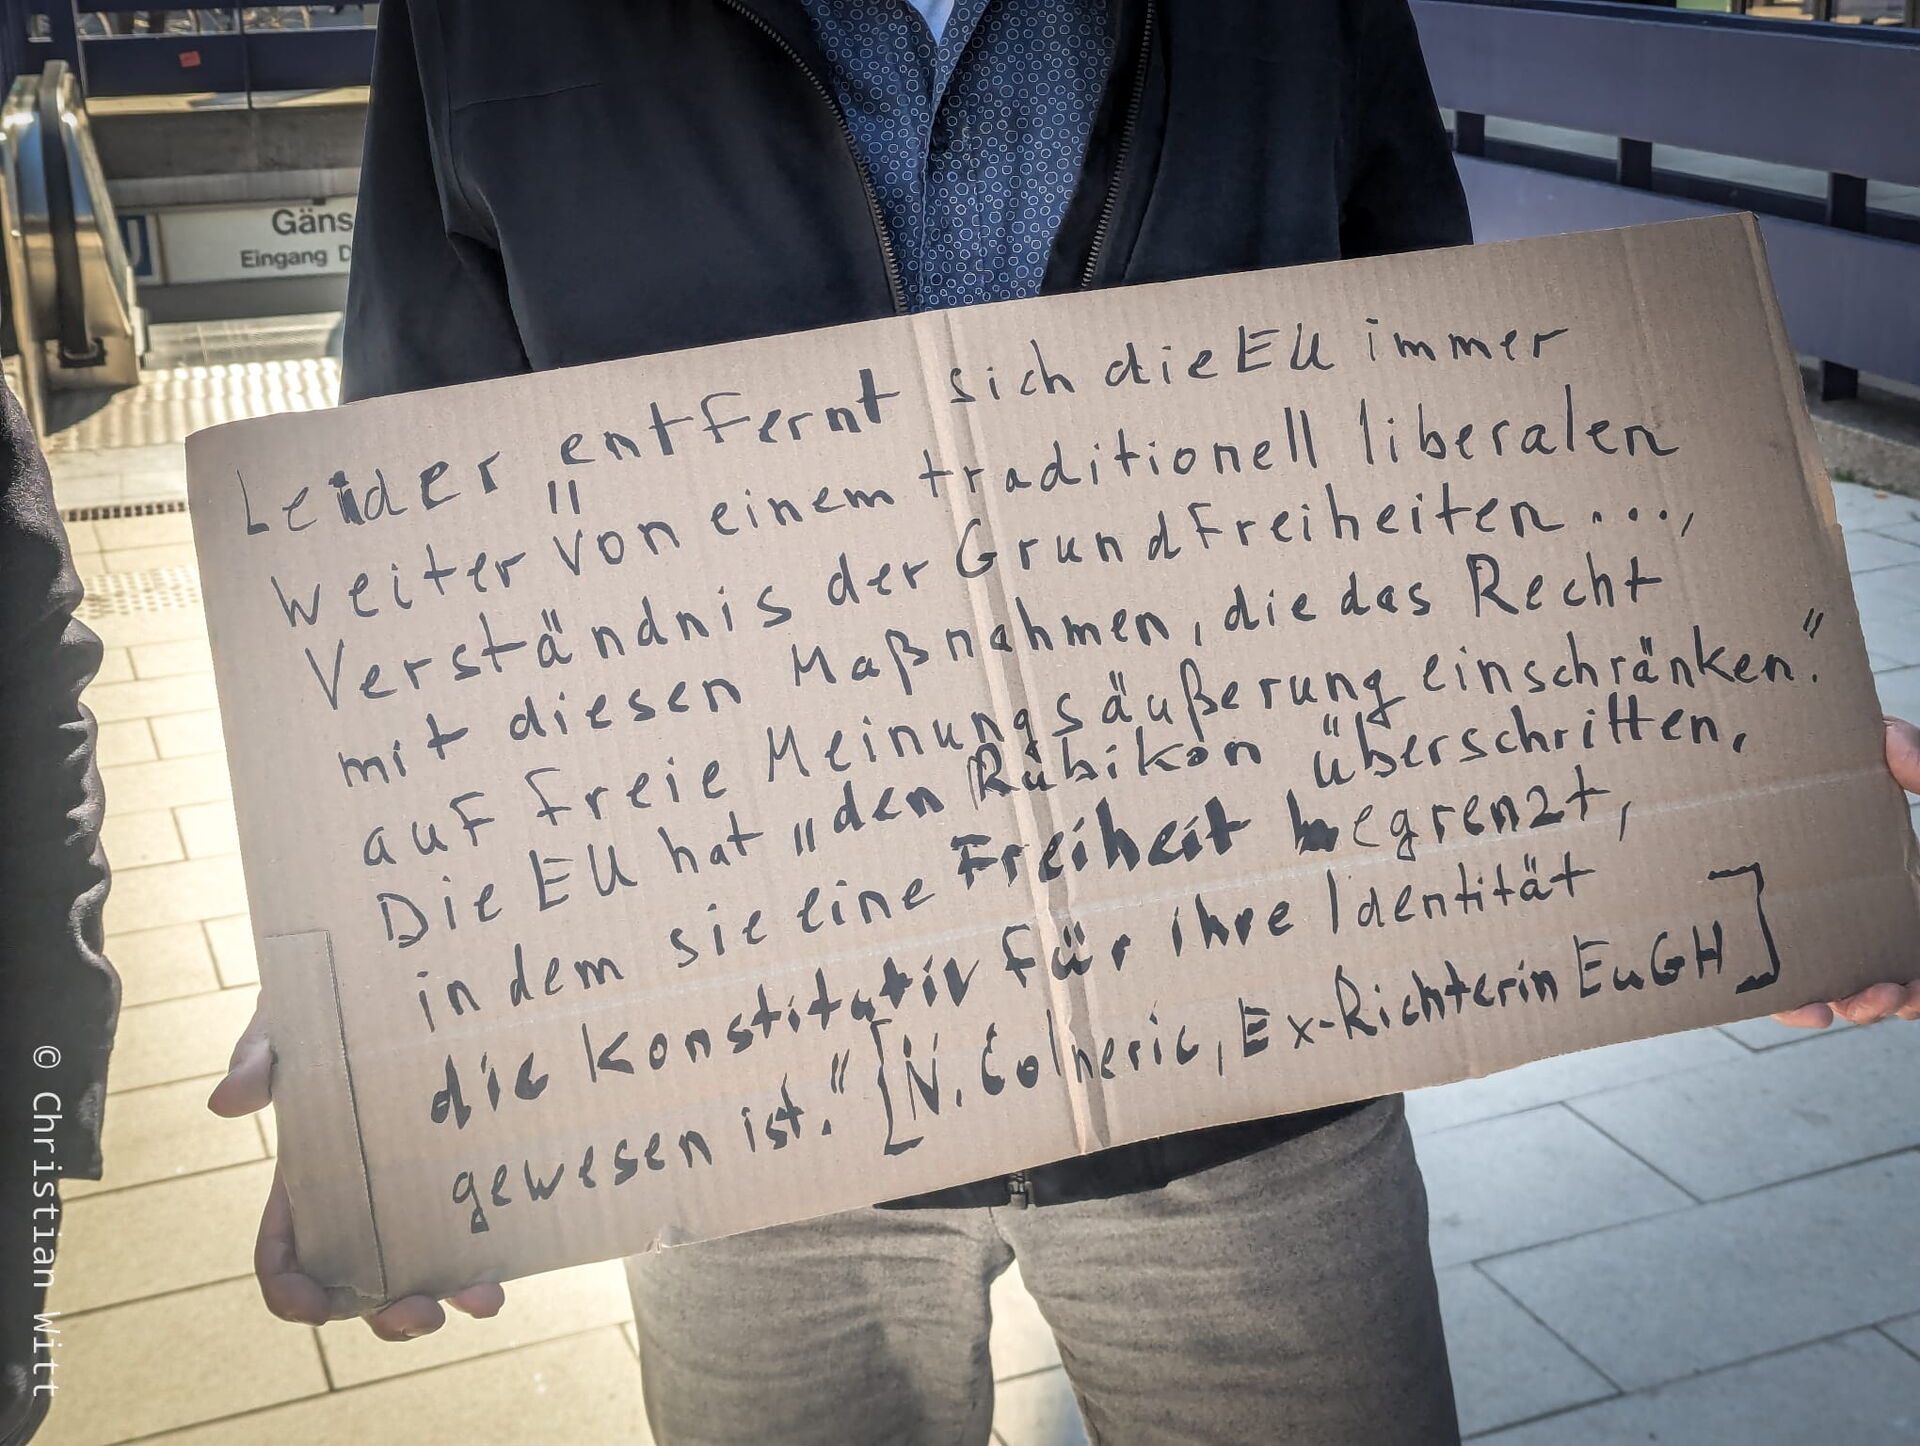 Gäns
Eingang D
Leider „entfernt sich die EU immer
weiter von einem traditionell liberalen
Verständnis der Grundfreiheiten ...,
mit diesen Maßnahmen, die das Recht
auf freie Meinungsäußerung einschränken.“
Die EU hat „den Rubikon überschritten,
in dem sie eine Freiheit begrenzt,
die konstitutiv für ihre Identität
gewesen ist.“ [N. Colneric, Ex-Richterin EuGH]
© Christian Witt